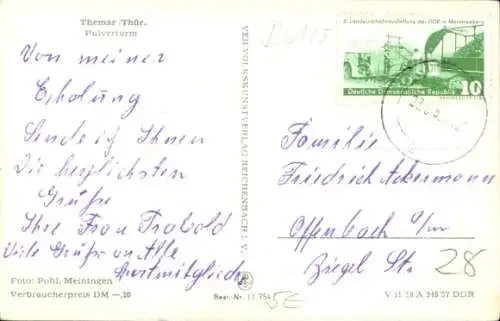 Themar /Thür.
Pulverturm
Von meiner
Erholung
Sende ich Ihnen
Die herzlichsten
Grüße
Ihre Frau Trabold
Viele Grüße an Alle
Foto: Pohl, Meiningen
Verbraucherpreis DM —,20
VEB VOLKSKUNSTVERLAG REICHENBACH i. V.
Best.-Nr. 11 754
6. Landwirtschaftsausstellung der DDR in Markkleeberg
Deutsche Demokratische Republik
10
Familie
Friedrich Ackermann
Offenbach a/m
Ziegel Str. 28
V 11 28 A 246/57 DDR